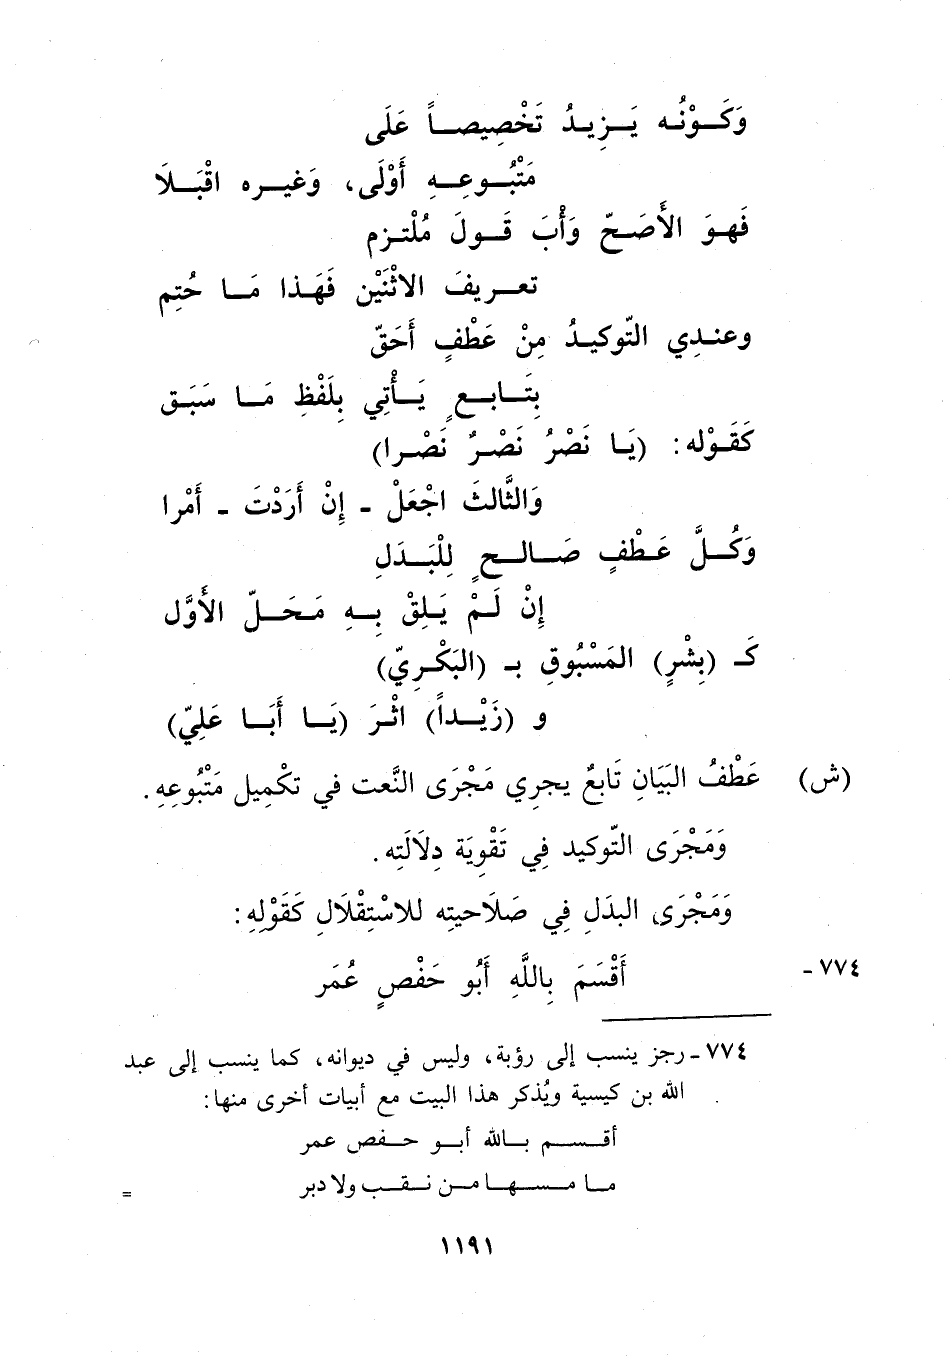 وَكَوْنُه يَزِيدُ تَخْصِيصاً عَلَى
مَتْبُوعِهِ أَوْلَى، وَغيره اقْبَلَا
فَهوَ الأَصَحّ وَأْبَ قَولَ مُلْتزم
تعريفَ الاثْنَيْن فَهَذا مَا حُتِم
وعندِي التّوكيدُ مِنْ عَطْفٍ أَحَقّ
بِتَابعٍ يَأْتِي بِلَفْظِ مَا سَبَق
كَقَوْله: (يَا نَصْرُ نَصْرٌ نَصْرا)
وَالثَّالثَ اجْعَلْ - إِنْ أَرَدْتَ - أَمْرا
وَكُلَّ عَطْفٍ صَالحٍ لِلْبَدَلِ
إِنْ لَمْ يَلِقْ بِهِ مَحَلّ الأَوَّل
كَـ (بِشْرٍ) المَسْبُوقِ بـ (البَكْرِيّ)
و (زَيْداً) اثْرَ (يَا أَبَا عَلِيّ)
(ش) عَطْفُ البَيَانِ تَابعٌ يجرِي مَجْرَى النَّعت في تكْمِيل مَتْبُوعِهِ.
وَمَجْرَى التّوكيد فِي تَقْوِيَة دِلَالَتِه.
وَمَجْرَى البدَلِ فِي صَلَاحيتِه للاسْتِقْلَالِ كَقَوْلِهِ:
٧٧٤- أَقْسَمَ بِاللَّهِ أَبُو حَفْصٍ عُمَر
٧٧٤ - رجز ينسب إلى رؤبة، وليس في ديوانه، كما ينسب إلى عبد
الله بن كيسية ويُذكر هذا البيت مع أبيات أخرى منها:
أقسم بالله أبو حفص عمر
ما مسها من نقب ولا دبر =
١١٩١